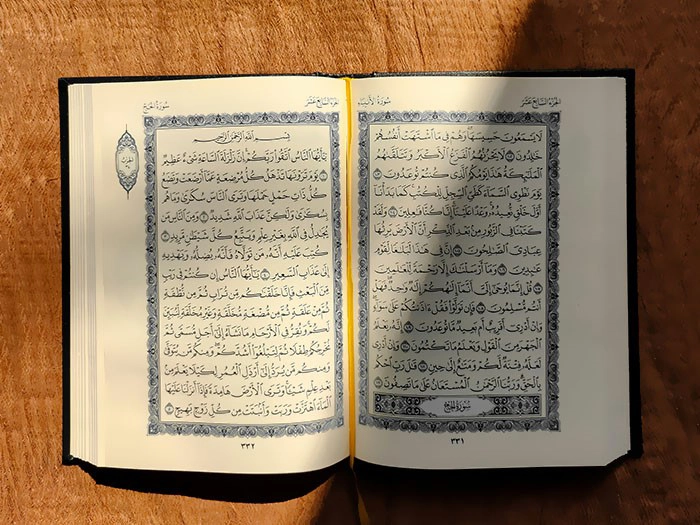 الجزء السابع عشر
سورة الأنبياء
لَا يَسْمَعُونَ حَسِيسَهَا وَهُمْ فِي مَا ٱشْتَهَتْ أَنفُسُهُمْ
خَٰلِدُونَ ١٠٢ لَا يَحْزُنُهُمُ ٱلْفَزَعُ ٱلْأَكْبَرُ وَتَتَلَقَّىٰهُمُ
ٱلْمَلَٰٓئِكَةُ هَٰذَا يَوْمُكُمُ ٱلَّذِي كُنتُمْ تُوعَدُونَ ١٠٣
يَوْمَ نَطْوِي ٱلسَّمَآءَ كَطَيِّ ٱلسِّجِلِّ لِلْكُتُبِ كَمَا بَدَأْنَآ
أَوَّلَ خَلْقٍ نُّعِيدُهُۥ وَعْدًا عَلَيْنَآ إِنَّا كُنَّا فَٰعِلِينَ ١٠٤ وَلَقَدْ
كَتَبْنَا فِي ٱلزَّبُورِ مِنۢ بَعْدِ ٱلذِّكْرِ أَنَّ ٱلْأَرْضَ يَرِثُهَا
عِبَادِيَ ٱلصَّٰلِحُونَ ١٠٥ إِنَّ فِي هَٰذَا لَبَلَٰغًا لِّقَوْمٍ
عَٰبِدِينَ ١٠٦ وَمَآ أَرْسَلْنَٰكَ إِلَّا رَحْمَةً لِّلْعَٰلَمِينَ ١٠٧
قُلْ إِنَّمَا يُوحَىٰٓ إِلَيَّ أَنَّمَآ إِلَٰهُكُمْ إِلَٰهٌ وَٰحِدٌ فَهَلْ
أَنتُم مُّسْلِمُونَ ١٠٨ فَإِن تَوَلَّوْا۟ فَقُلْ ءَاذَنتُكُمْ عَلَىٰ سَوَآءٍ
وَإِنْ أَدْرِيٓ أَقَرِيبٌ أَم بَعِيدٌ مَّا تُوعَدُونَ ١٠٩ إِنَّهُۥ يَعْلَمُ
ٱلْجَهْرَ مِنَ ٱلْقَوْلِ وَيَعْلَمُ مَا تَكْتُمُونَ ١١٠ وَإِنْ أَدْرِي
لَعَلَّهُۥ فِتْنَةٌ لَّكُمْ وَمَتَٰعٌ إِلَىٰ حِينٍ ١١١ قَٰلَ رَبِّ ٱحْكُم
بِٱلْحَقِّ وَرَبُّنَا ٱلرَّحْمَٰنُ ٱلْمُسْتَعَانُ عَلَىٰ مَا تَصِفُونَ ١١٢
سُورَةُ الحَجِّ
٣٣١
الجزء السابع عشر
سورة الحج
بِسْمِ ٱللَّهِ ٱلرَّحْمَٰنِ ٱلرَّحِيمِ
يَٰٓأَيُّهَا ٱلنَّاسُ ٱتَّقُوا۟ رَبَّكُمْ إِنَّ زَلْزَلَةَ ٱلسَّاعَةِ شَيْءٌ عَظِيمٌ ١
يَوْمَ تَرَوْنَهَا تَذْهَلُ كُلُّ مُرْضِعَةٍ عَمَّآ أَرْضَعَتْ وَتَضَعُ
كُلُّ ذَاتِ حَمْلٍ حَمْلَهَا وَتَرَى ٱلنَّاسَ سُكَٰرَىٰ وَمَا هُم
بِسُكَٰرَىٰ وَلَٰكِنَّ عَذَابَ ٱللَّهِ شَدِيدٌ ٢ وَمِنَ ٱلنَّاسِ مَن
يُجَٰدِلُ فِي ٱللَّهِ بِغَيْرِ عِلْمٍ وَيَتَّبِعُ كُلَّ شَيْطَٰنٍ مَّرِيدٍ ٣
كُتِبَ عَلَيْهِ أَنَّهُۥ مَن تَوَلَّاهُ فَأَنَّهُۥ يُضِلُّهُۥ وَيَهْدِيهِ
إِلَىٰ عَذَابِ ٱلسَّعِيرِ ٤ يَٰٓأَيُّهَا ٱلنَّاسُ إِن كُنتُمْ فِي رَيْبٍ
مِّنَ ٱلْبَعْثِ فَإِنَّا خَلَقْنَٰكُم مِّن تُرَابٍ ثُمَّ مِن نُّطْفَةٍ
ثُمَّ مِنْ عَلَقَةٍ ثُمَّ مِن مُّضْغَةٍ مُّخَلَّقَةٍ وَغَيْرِ مُخَلَّقَةٍ لِّنُبَيِّنَ
لَكُمْ وَنُقِرُّ فِي ٱلْأَرْحَامِ مَا نَشَآءُ إِلَىٰٓ أَجَلٍ مُّسَمًّى ثُمَّ
نُخْرِجُكُمْ طِفْلًا ثُمَّ لِتَبْلُغُوٓا۟ أَشُدَّكُمْ وَمِنكُم مَّن يُتَوَفَّىٰ
وَمِنكُم مَّن يُرَدُّ إِلَىٰٓ أَرْذَلِ ٱلْعُمُرِ لِكَيْلَا يَعْلَمَ مِنۢ
بَعْدِ عِلْمٍ شَيْـًٔا وَتَرَى ٱلْأَرْضَ هَامِدَةً فَإِذَآ أَنزَلْنَا عَلَيْهَا
ٱلْمَآءَ ٱهْتَزَّتْ وَرَبَتْ وَأَنۢبَتَتْ مِن كُلِّ زَوْجٍۭ بَهِيجٍ ٥
الحزب
٣٣٢